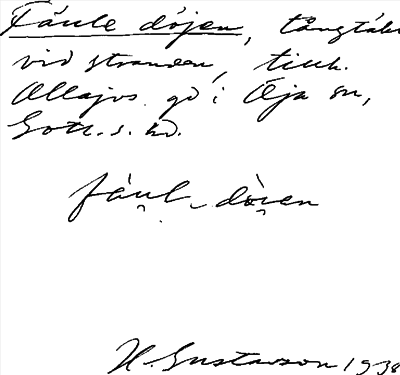 Fåule döjen, tångtäkt
vid stranden, tillh.
Ollajvs gd i Öja sn,
Gotl. s. hd.
fåul_ döjen
H. Gustavson 1938